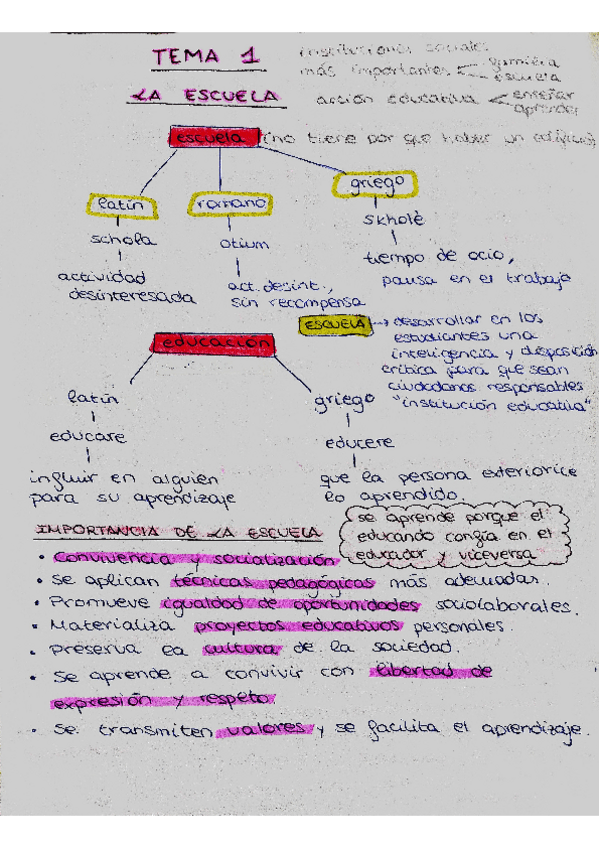 TEMA 1
instituciones sociales
más importantes
familia
escuela
LA ESCUELA
acción educativa
enseñar
aprender
escuela (no tiene por que haber un edificio)
latín
romano
griego
schola
otium
skholè
actividad
desinteresada
act. desint.,
sin recompensa
tiempo de ocio,
pausa en el trabajo
ESCUELA → desarrollar en los
estudiantes una
inteligencia y disposición
crítica para que sean
ciudadanos responsables
"institución educativa"
educación
latín
griego
educare
educere
influir en alguien
para su aprendizaje
que la persona exteriorice
lo aprendido.
se aprende porque el
educando confía en el
educador y viceversa
IMPORTANCIA DE LA ESCUELA
• Convivencia y socialización
• Se aplican técnicas pedagógicas más adecuadas.
• Promueve igualdad de oportunidades sociolaborales.
• Materializa proyectos educativos personales.
• Preserva la cultura de la sociedad.
• Se aprende a convivir con libertad de
expresión y respeto.
• Se transmiten valores y se facilita el aprendizaje.